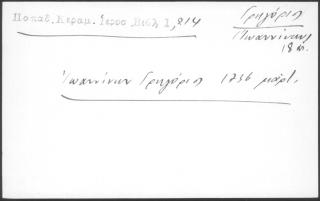 Παπαδ. Κεραμ. Ιεροσ. Βιβλ 1, 214
Γρηγόριος
Ἰωαννίνων
18 αι.
Ἰωαννίνων Γρηγόριος 1736 μάρτ.